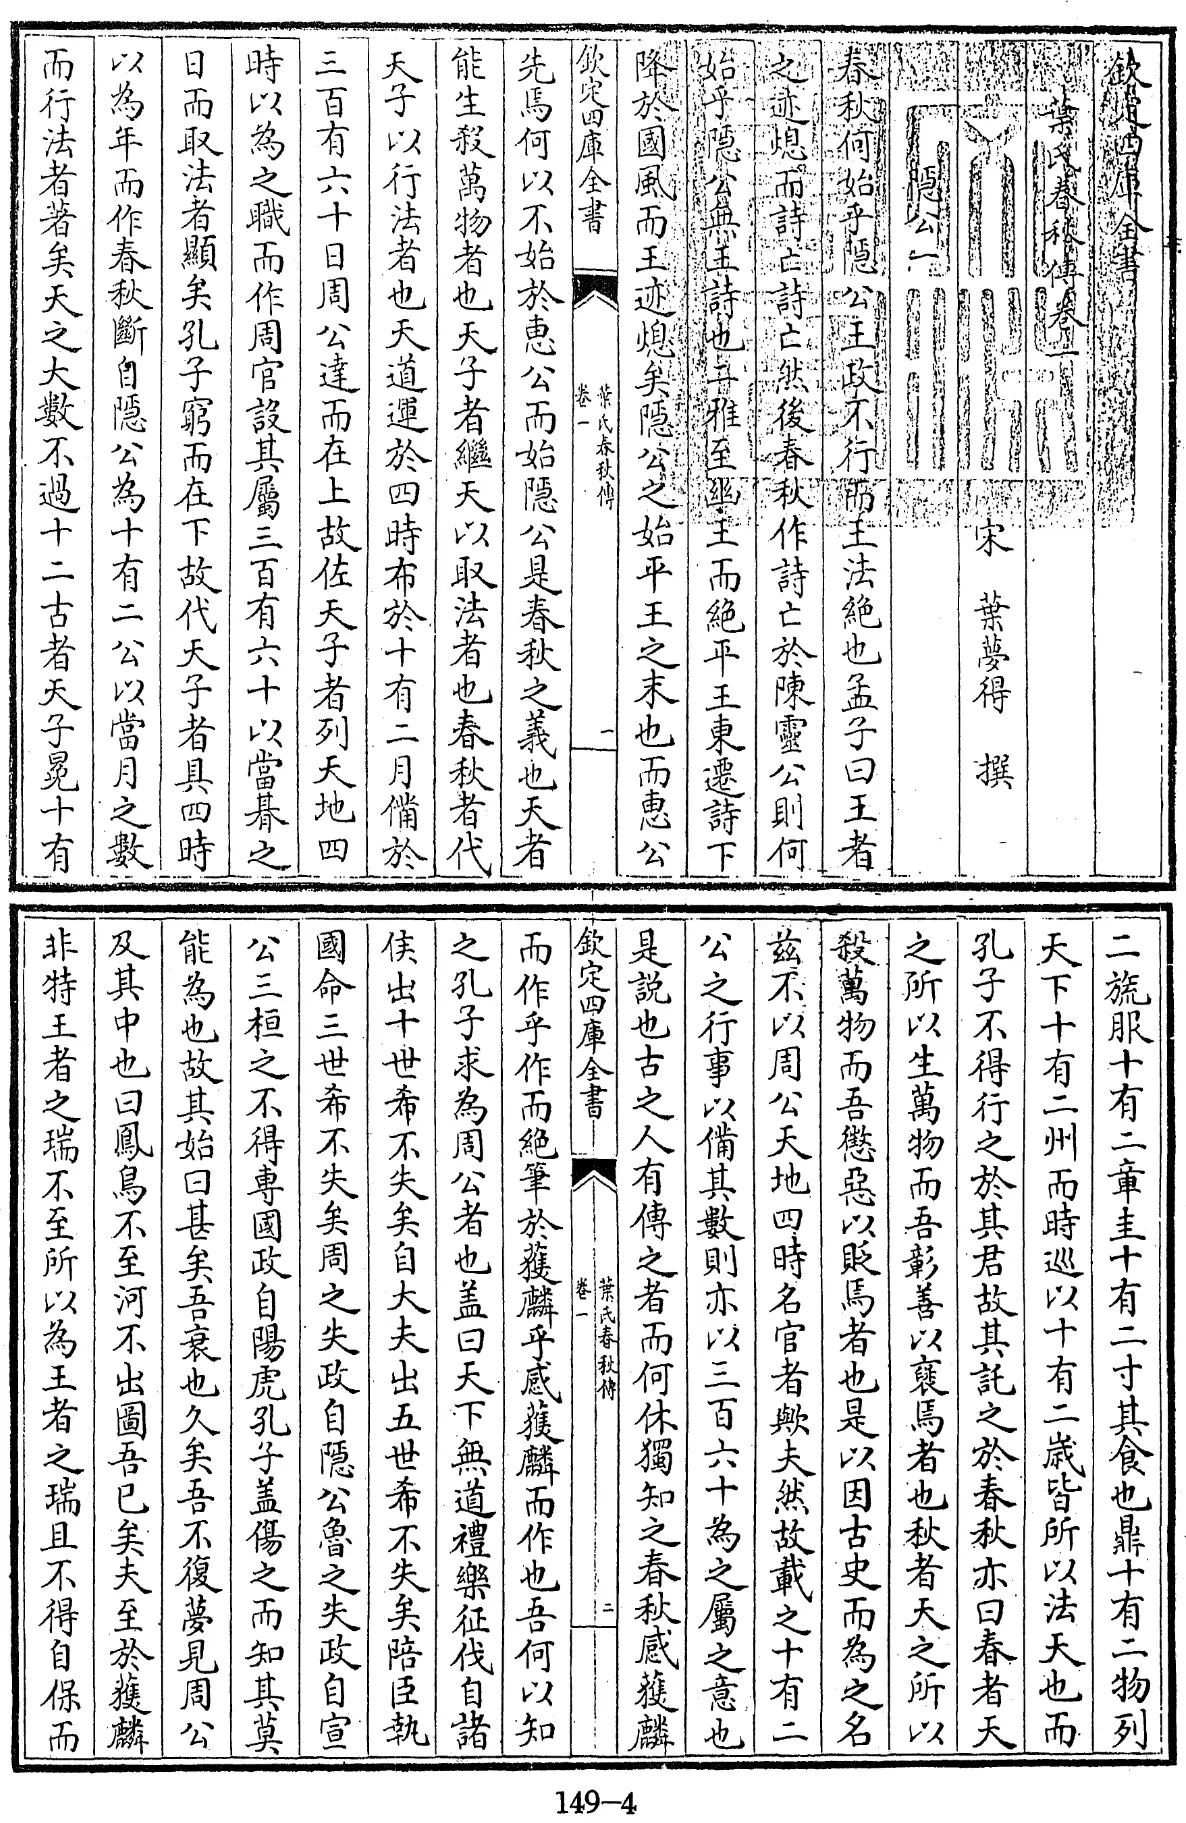 欽定四庫全書
葉氏春秋傳卷一
宋 葉夢得 撰
隱公一
春秋何始乎隱公王政不行而王法絶也孟子曰王者
之迹熄而詩亡詩亡然後春秋作詩亡於陳靈公則何
始乎隱公無王詩也二雅至幽王而絶平王東遷詩下
降於國風而王迹熄矣隱公之始平王之末也而惠公
欽定四庫全書
葉氏春秋傳
卷一
一
先焉何以不始於惠公而始隱公是春秋之義也天者
能生殺萬物者也天子者繼天以取法者也春秋者代
天子以行法者也天道運於四時布於十有二月備於
三百有六十日周公達而在上故佐天子者列天地四
時以為之職而作周官設其屬三百有六十以當朞之
日而取法者顯矣孔子窮而在下故代天子者具四時
以為年而作春秋斷自隱公為十有二公以當月之數
而行法者著矣天之大數不過十二古者天子冕十有
二旒服十有二章圭十有二寸其食也鼎十有二物列
天下十有二州而時巡以十有二歲皆所以法天也而
孔子不得行之於其君故其託之於春秋亦曰春者天
之所以生萬物而吾彰善以襃焉者也秋者天之所以
殺萬物而吾懲惡以貶焉者也是以因古史而為之名
兹不以周公天地四時名官者歟夫然故載之十有二
公之行事以備其數則亦以三百六十為之屬之意也
是説也古之人有傳之者而何休獨知之春秋感獲麟
欽定四庫全書
葉氏春秋傳
卷一
二
而作乎作而絶筆於獲麟乎感獲麟而作也吾何以知
之孔子求為周公者也盖曰天下無道禮樂征伐自諸
侯出十世希不失矣自大夫出五世希不失矣陪臣執
國命三世希不失矣周之失政自隱公魯之失政自宣
公三桓之不得專國政自陽虎孔子盖傷之而知其莫
能為也故其始曰甚矣吾衰也久矣吾不復夢見周公
及其中也曰鳳鳥不至河不出圖吾已矣夫至於獲麟
非特王者之瑞不至所以為王者之瑞且不得自保而
149-4